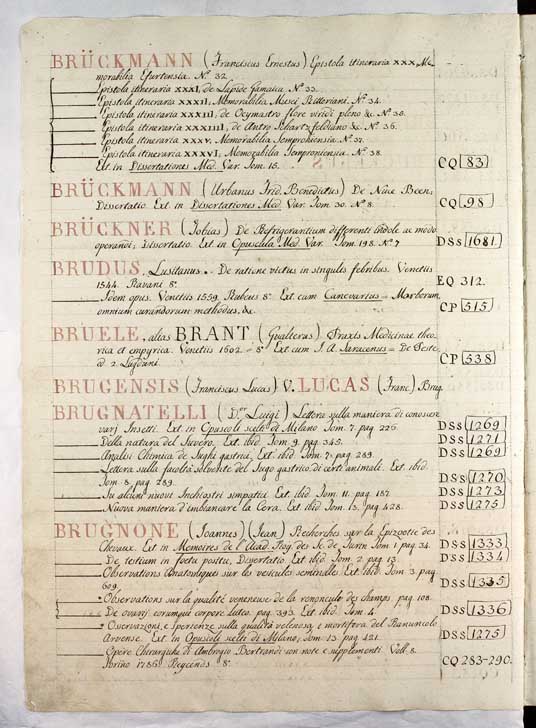 BRÜCKMANN (Franciscus Ernestus) Epistola itineraria XXX, Me-
morabilia Efurtensia. N.º 32.
Epistola itineraria XXXI, de Lapide Gamaica. N.º 33.
Epistola itineraria XXXII, Memorabilia Musei Ritteriani. N.º 34.
Epistola itineraria XXXIII, de Ocymastro flore viridi pleno &c. N.º 35.
Epistola itineraria XXXIIII, de Antro Schartzfeldiano &c. N.º 36.
Epistola itineraria XXXV, Memorabilia Semproniensia. N.º 37.
Epistola itineraria XXXVI, Memorabilia Semproniensia. N.º 38.
Ext. in Dissertationes Med. Var. Tom. 15. CQ 83
BRÜCKMANN (Urbanus Frid. Benedictus) De Nuce Been,
Dissertatio. Ext. in Dissertationes Med. Var. Tom. 30. N.º 8. CQ 98
BRÜCKNER (Tobias) De Refrigerantium differenti indole ac modo
operandi, Dissertatio. Ext. in Opuscula Med. Var. Tom. 198. N.º 7 DSS 1681
BRUDUS, Lusitanus. De ratione victus in singulis febribus. Venetiis
1544. Ravani 8º EQ 312.
Idem opus. Venetiis 1559. Rubeus 8º Ext. cum Canevarius = Morborum
omnium curandorum methodus, &c. CP 515
BRUELE, alias BRANT (Gualterus) Praxis Medicinae theo-
rica et empyrica. Venetiis 1602 = 8º Ext. cum J. A. Saracenus = De Peste
ed. 2. Lugduni. CP 538
BRUGENSIS (Franciscus Lucas) V. LUCAS (Franc.) Brug.
BRUGNATELLI (D.ʳ Luigi) Lettera sulla maniera di conoscere
varj Insetti. Ext. in Opuscoli scelti di Milano Tom. 7. pag. 226. DSS 1269
Della natura del Suvero. Ext. ibid. Tom. 9. pag. 345. DSS 1271
Analisi Chimica de Sughi gastrici, Ext. ibid. Tom. 7. pag. 289. DSS 1269
Lettera sulla facoltà solvente del Sugo gastrico di certi animali. Ext. ibid.
Tom. 8. pag. 289. DSS 1270
Su alcuni nuovi Inchiostri simpatici. Ext. ibid. Tom. 11. pag. 187. DSS 1273
Nuova maniera d'imbiancare la Cera. Ext. ibid. Tom. 13. pag. 428. DSS 1275
BRUGNONE (Joannes) (Jean) Recherches sur la Epizootie des
Chevaux. Ext. in Memoires de l'Acad. Roy. des Sc. de Turin Tom. 1. pag. 34. DSS 1333
De testium in foetu positu, Dissertatio. Ext. ibid. Tom. 2. pag. 13. DSS 1334
Observations Anatomiques sur les vesicules seminelles. Ext. ibid. Tom. 3. pag.
609. DSS 1335
Observations sur la qualité veneneuse de la rononcule des champs pag. 108.
De ovarijs eorumque corpore luteo. pag. 393. Ext. ibid. Tom. 4. DSS 1336
Osservazioni, e Sperienze sulla qualità velenosa, e mortifera del Ranuncolo
Arvense. Ext. in Opuscoli scelti di Milano, Tom. 13. pag. 421. DSS 1275
Opere Chirurgiche di Ambrogio Bertrandi con note e supplementi. Voll. 8.
Torino 1786. Reycends 8º CQ 283-290.